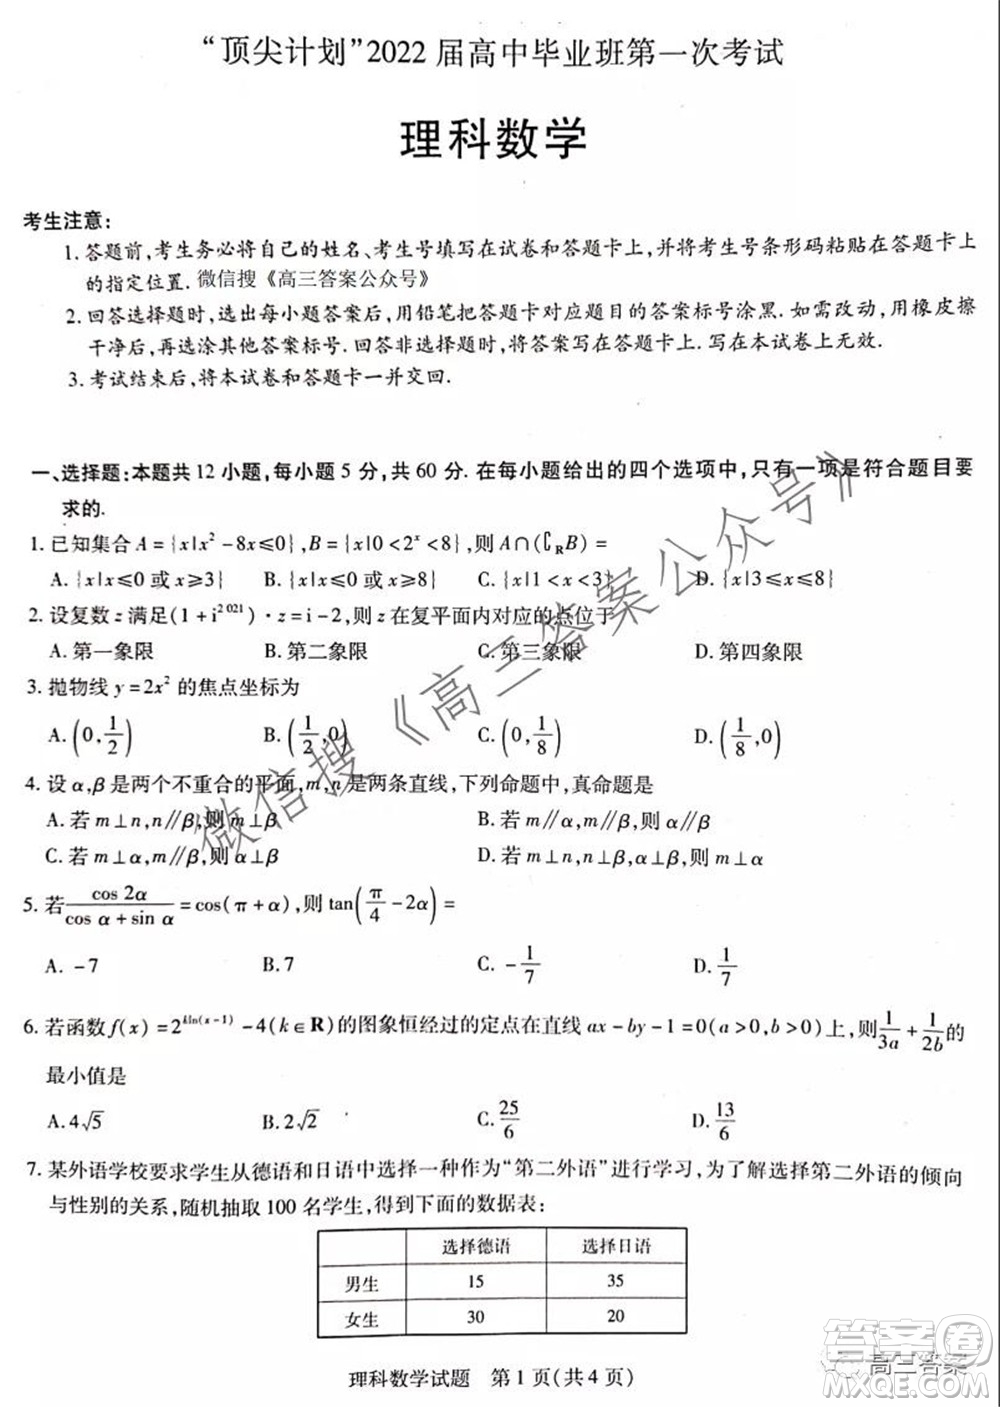 “顶尖计划”2022届高中毕业班第一次考试
理科数学
考生注意:
1. 答题前,考生务必将自己的姓名、考生号填写在试卷和答题卡上,并将考生号条形码粘贴在答题卡上
的指定位置. 微信搜《高三答案公众号》
2. 回答选择题时,选出每小题答案后,用铅笔把答题卡对应题目的答案标号涂黑. 如需改动,用橡皮擦
干净后,再选涂其他答案标号. 回答非选择题时,将答案写在答题卡上. 写在本试卷上无效.
3. 考试结束后,将本试卷和答题卡一并交回.
一、选择题:本题共 12 小题,每小题 5 分,共 60 分. 在每小题给出的四个选项中,只有一项是符合题目要
求的.
1. 已知集合 A={x|x²-8x≤0},B={x|0<2ˣ<8},则 A∩(∁ᴿB)=
A. {x|x≤0 或 x≥3} B. {x|x≤0 或 x≥8} C. {x|1<x<3} D. {x|3≤x≤8}
2. 设复数 z 满足(1+i²⁰²¹)·z=i-2,则 z 在复平面内对应的点位于
A. 第一象限 B. 第二象限 C. 第三象限 D. 第四象限
3. 抛物线 y=2x² 的焦点坐标为
A. (0,1/2) B. (1/2,0) C. (0,1/8) D. (1/8,0)
4. 设 α,β 是两个不重合的平面,m,n 是两条直线,下列命题中,真命题是
A. 若 m⊥n,n∥β,则 m⊥β B. 若 m∥α,m∥β,则 α∥β
C. 若 m⊥α,m∥β,则 α⊥β D. 若 m⊥n,n⊥β,α⊥β,则 m⊥α
5. 若 cos 2α/(cos α+sin α)=cos(π+α),则 tan(π/4-2α)=
A. -7 B. 7 C. -1/7 D. 1/7
6. 若函数 f(x)=2^(kln(x-1))-4(k∈R)的图象恒经过的定点在直线 ax-by-1=0(a>0,b>0)上,则 1/3a+1/2b 的
最小值是
A. 4√5 B. 2√2 C. 25/6 D. 13/6
7. 某外语学校要求学生从德语和日语中选择一种作为“第二外语”进行学习,为了解选择第二外语的倾向
与性别的关系,随机抽取 100 名学生,得到下面的数据表:
选择德语 选择日语
男生 15 35
女生 30 20
理科数学试题 第 1 页(共 4 页)
微信搜《高三答案公众号》
答案圈
高三答案
MXQE.COM